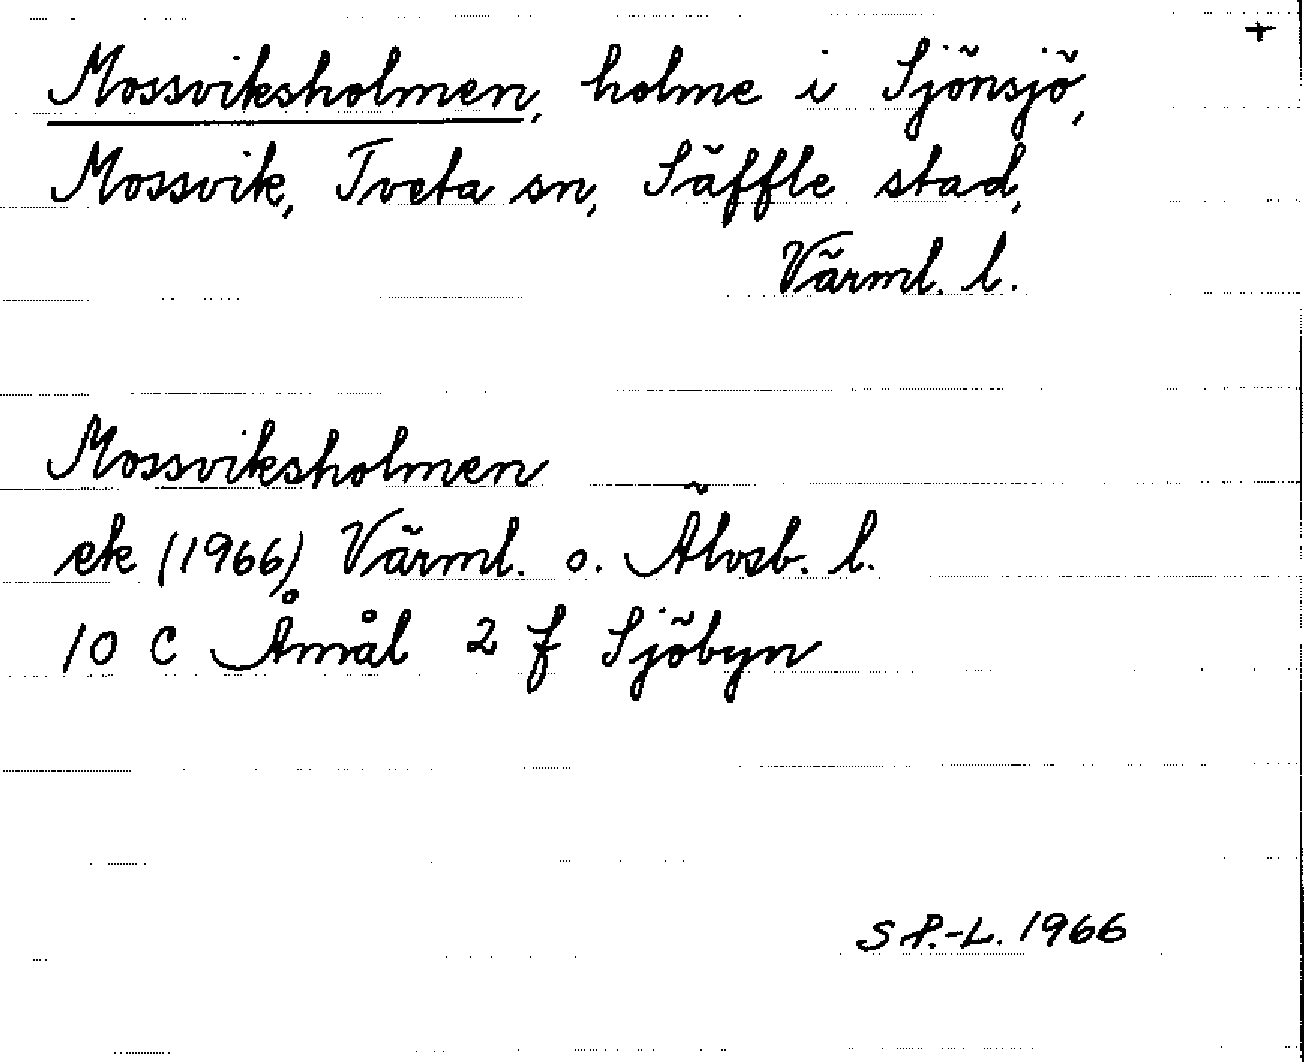 +
Mossviksholmen, holme i Sjönsjö,
Mossvik, Tveta sn, Säffle stad,
Värml. l.
Mossviksholmen
ek (1966) Värml. o. Älvsb. l.
10 C Åmål 2 f Sjöbyn
S P.-L. 1966